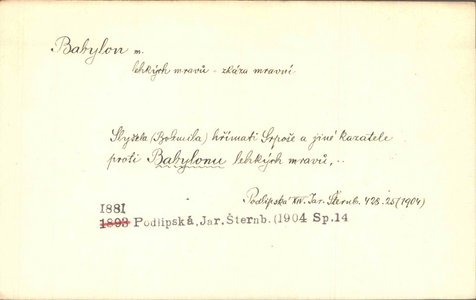 Babylon m.
lehkých mravů - zkáza mravní
Slyšela (Bohmila) hřímati Srpoše a jiné kazatele
proti Babylonu lehkých mravů, ..
Podlipská XIV. Jar. Šternb. 428.25 (1904)
1881
1893 Podlipská, Jar. Šternb. (1904 Sp.14